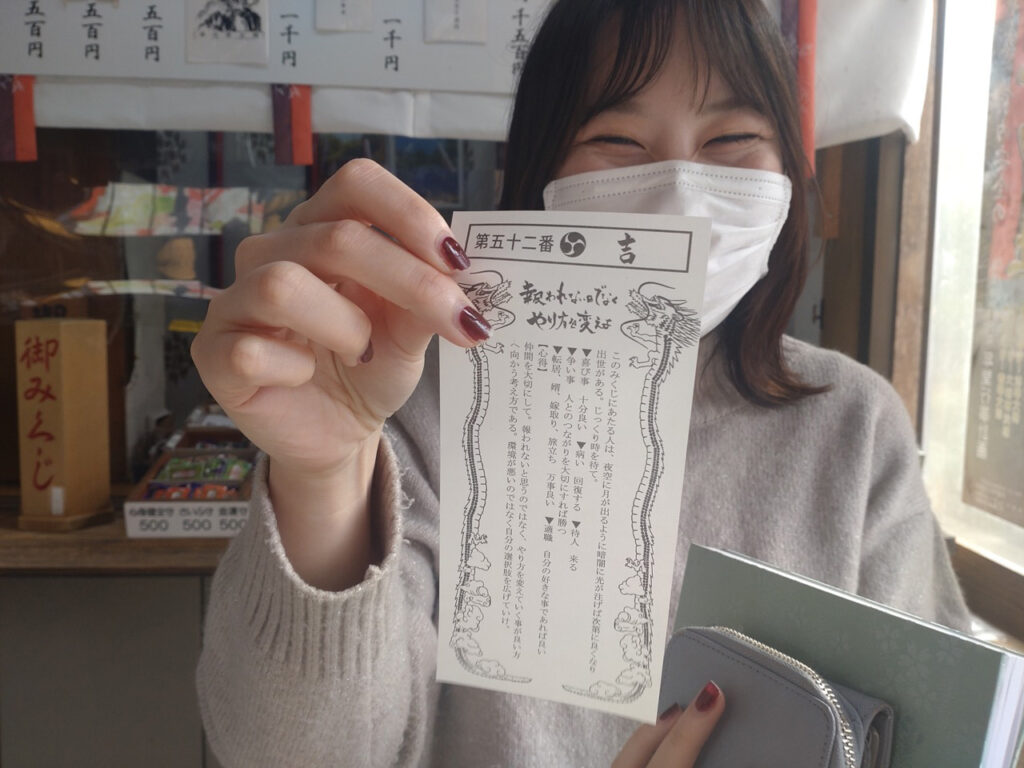 五百円
五百円
五百円
一千円
一千円
千五百円
御みくじ
500 500 500
第五十二番 吉
報われない日でなく
やり方を変えよ
このみくじにあたる人は、夜空に月が出るように暗闇に光が注げば次第に良くなり
出世がある。じっくり時を待て。
▼喜び事 十分良い ▼病い 回復する ▼待人 来る
▼争い事 人とのつながりを大切にすれば勝つ
▼転居、婿、嫁取り、旅立ち 万事良い ▼適職 自分の好きな事であれば良い
【心得】
仲間を大切にして。報われないと思うのではなく、やり方を変えていく事が良い方
へ向かう考え方である。環境が悪いのではなく自分の選択肢を広げていけ。